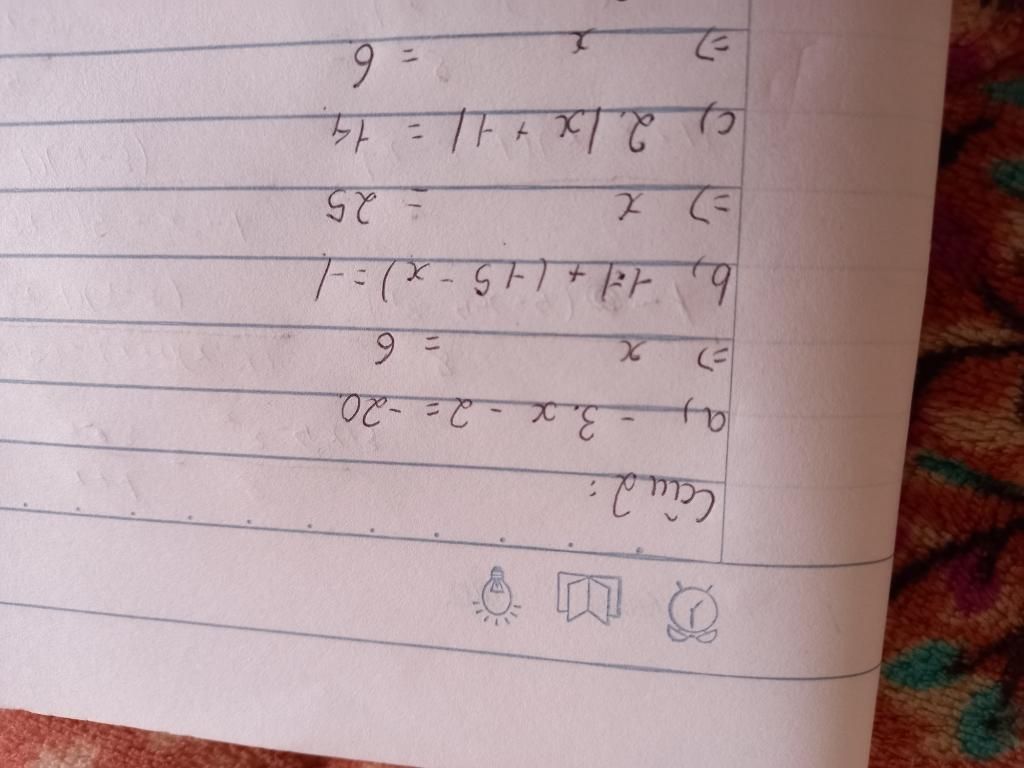 Câu 2:
a, - 3.x - 2 = -20
=> x = 6
b, 11 + (15 - x) = 1
=> x = 25
c, 2.|x + 1| = 14
=> x = 6